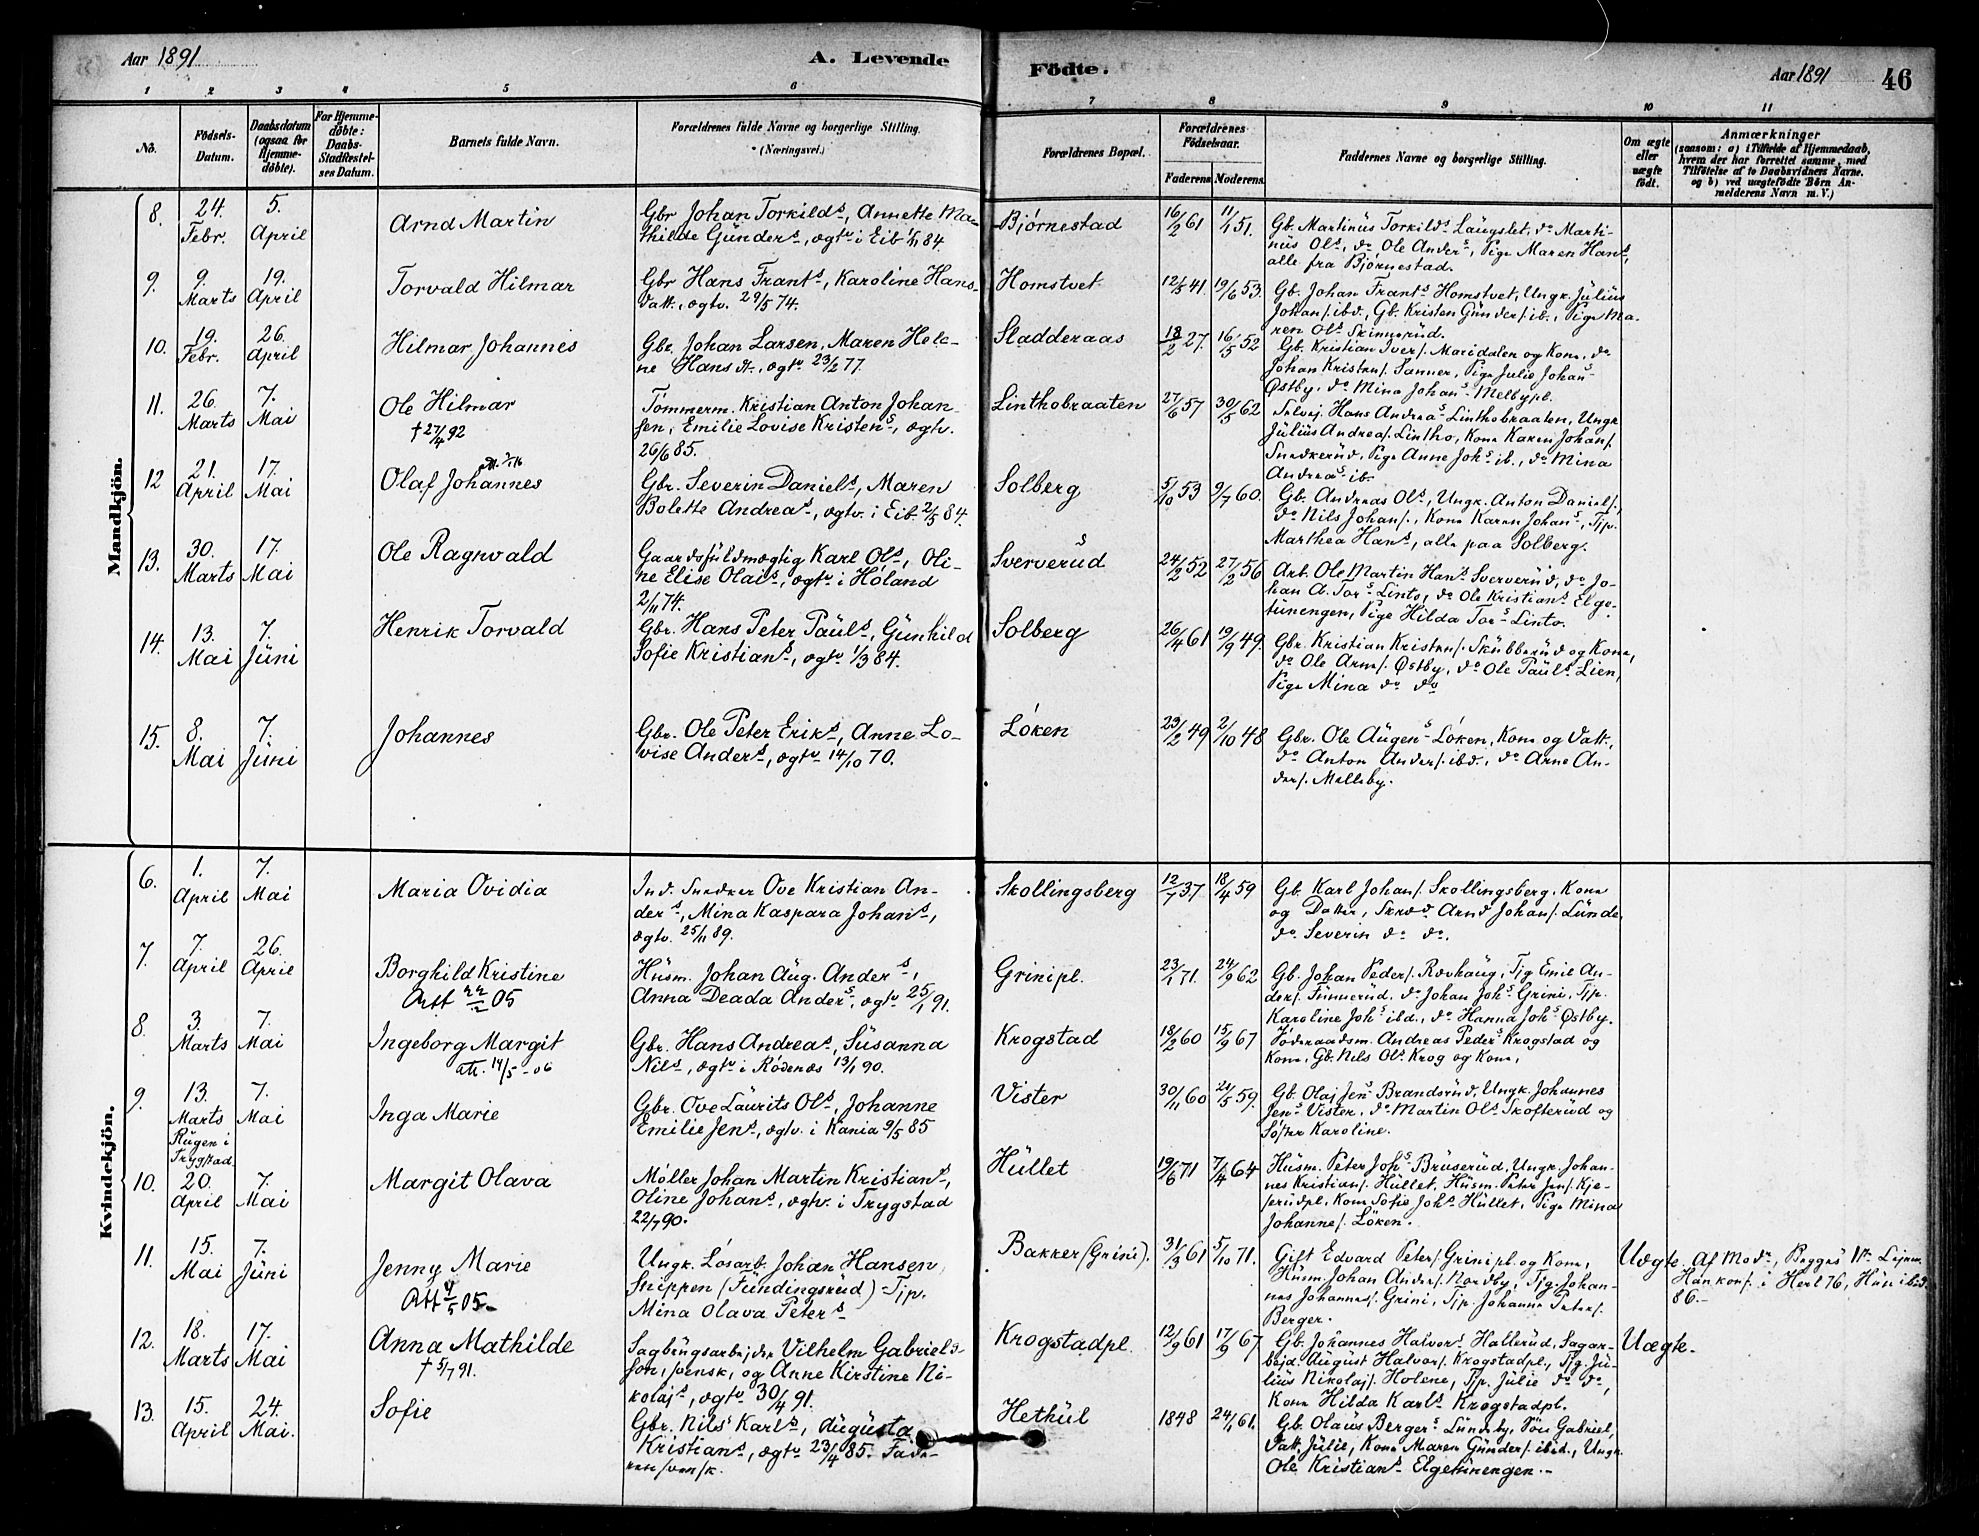 Aar 1891
A. Levende
Födte.
Aar 1891
46
1 2 3 4 5 6 7 8 9 10 11
No.
Födsels-
Datum.
Daabsdatum
(ogsaa for
Hjemme-
döbte).
For Hjemme-
döbte:
Daabs-
Stadfæstel-
ses Datum.
Barnets fulde Navn.
Forældrenes fulde Navne og borgerlige Stilling.
(Næringsvei.)
Forældrenes Bopæl.
Forældrenes
Födselsaar.
Faderens
Moderens
Faddernes Navne og borgerlige Stilling.
Om ægte
eller
uægte
födt.
Anmærkninger
(saasom: a) i Tilfælde af Hjemmedaab,
hvem der har forrettet samme, med
Tilföielse af to Daabsvidners Navne.
og b) ved uægtefödte Börn An-
melderens Navn m. V.)
Mandkjön.
8.
24.
Febr.
5.
April
Arnd Martin
Gbr Johan Torkilds, Annette Ma-
thilde Günders, ægtv i Eib 84
Bjørnestad
16/2 61
11/1 51.
Gb. Martinüs Torkilds Laugslet, do Marti-
nüs Ols, do Ole Anders, Pige Maren Hans,
alle fra Bjørnestad.
9.
9.
Marts
19.
April
Torvald Hilmar
Gbr Hans Frants, Karoline Hans-
datt., ægtv. 29/5 74.
Homstvet
12/5 41.
19/6 53.
Gb. Johan Frants Homstvet, Ungk. Jülius
Johans. ibd., Gb. Kristen Günders. ib., Pige Ma-
ren Ols Skinnerüd.
10.
19.
Febr.
26.
April
Hilmar Johannes
Gbr. Johan Larsen, Maren Hele-
ne Hans dt., ægtv 23/2 77.
Sladderaas
18/2 27.
16/5 52
Gb. Kristian Ivers. Maridalen og Kone, do
Johan Kristens. Sanner, Pige Julie Johans
Østby, do Mina Johans Melbypl.
11.
26.
Marts
7.
Mai
Ole Hilmar
† 27/4 92
Tømmerm. Kristian Anton Johan-
sen, Emilie Lovise Kristens, ægtv.
26/6 85.
Linthobraaten
27/6 57
30/5 62
Selvej. Hans Andreas Linthobraaten, Ungk
Jülius Andreas. Lintho, Kone Karen Johans.
Snedkerüd, Pige Anne Johs ib., do Mina
Andreas ib.
12
21.
April
17.
Mai
Olaf Johannes
Gbr. Severin Daniels, Maren
Bolette Andreas, ægtv. i Eib. 2/5 84.
Solberg
5/10 53
9/7 60.
Gb. Andreas Ols, Ungk. Anton Daniels.,
do Nils Johans., Kone Karen Johans, Tjp.
Marthea Hans, alle paa Solberg.
13.
30.
Marts
17.
Mai
Ole Ragnvald
Gaardsfuldmægtig Karl Ols, Oli-
ne Elise Olais, ægtv i Høland
2/11 74.
Sververüd
24/2 52
27/2 56
Arb. Ole Martin Hans Sververüd, do Jo-
han A. Tors Linto, do Ole Kristians Elge-
tünengen, Pige Hilda Tors Linto.
14.
13.
Mai
7.
Jüni
Henrik Torvald
Gbr. Hans Peter Paüls, Günhild
Sofie Kristians, ægtv 1/3 84.
Solberg
26/4 61
19/9 49.
Gbr. Kristian Kristens. Skübberüd og Kone,
do Ole Arnes. Østby, do Ole Paüls Lien,
Pige Mina do do
15.
8.
Mai
7.
Jüni
Johannes
Gbr. Ole Peter Eriks, Anne Lo-
vise Anders, ægtv 14/10 70.
Løken
23/2 49
2/10 48
Gbr. Ole Aügens Løken, Kone og Datt.,
do Anton Anders. ibd., do Arne An-
ders. Melleby.
Kvindekjön.
6.
1.
April
7.
Mai
Maria Ovidia
Ind. Snedker Ove Kristian An-
ders, Mina Kaspara Johans,
ægtv. 25/11 89.
Skollingsberg
12/7 37
18/4 59
Gb. Karl Johans. Skollingsberg, Kone
og Datter, Skræd. Arnd Johans. Lünde,
do Severin do do.
7.
7.
April
26.
April
Borghild Kristine
Att 22/2 05
Hüsm. Johan Aüg. Anders,
Anna Deada Anders, ægtv 25/1 91.
Grinipl.
23/1 71.
24/9 62
Gb. Johan Peders. Rævhaüg, Tjg Emil An-
ders. Finnerüd, do Johan Johs Grini, Tjp.
Karoline Johs ibd., do Hanna Johs Østby.
8.
3.
Marts
7.
Mai
Ingeborg Margit
Att. 14/5-06
Gbr. Hans Andreas, Süsanna
Nils, ægtv i Rødenæs 13/1 90.
Krogstad
18/2 60
15/9 67
Føderaadsm. Andreas Peders Krogstad og
Kone, Gb. Nils Ols Krog og Kone.
9.
13.
Marts
Rügen i
Trygstad
7.
Mai
Inga Marie
Gbr. Ove Laürits Ols, Johanne
Emilie Jens, ægtv. i Kania 9/5 85
Vister
30/11 60
21/5 59.
Gb. Olaj Jens Brandsrüd, Ungk. Johannes
Jens Vister, do Martin Ols Skofterüd og
Søster Karoline.
10.
20.
April
7.
Mai
Margit Olava
Møller Johan Martin Kristians,
Oline Johans, ægtv. i Trygstad
22/7 90.
Hüllet
19/6 71
7/4 64
Hüsm. Peter Johs Brüserüd, Ungk. Johan-
nes Kristians. Hüllet, Hüsm. Peter Jens. Kje-
serüdpl., Kone Sofie Johs Hüllet, Pige Mina
Johannes. Løken.
11.
15.
Mai
7.
Jüni
Jenny Marie
Att 9/5 05
Ungk. Løsarb. Johan Hansen
Snippen (Fündingsrüd) Tjp.
Mina Olava Peters
Bakker (Grini).
31/3 61
5/10 71.
Gift Edvard Peters. Grinipl. og Kone,
Hüsm. Johan Anders. Nordby, Tjg. Johan-
nes Johannes. Grini, Tjp. Johanne Peters.
Berger.
Uægte.
Af Modr,
Han konf. i Herl 76, Hün ibd
86.
12.
18.
Marts
17.
Mai
Anna Mathilde
† 5/7 91.
Sagbrugsarbejder Vilhelm Gabriels-
son, svensk, og Anne Kirstine Ni-
kolajs, ægtv 30/4 91.
Krogstadpl.
12/9 61
17/9 67
Gb. Johannes Halvors Hallerüd, Sagar-
bejd. Aügüst Halvors. Krogstadpl., Tjg. Jü-
liüs Nikolajs. Holene, Tjp. Jülie do do,
Kone Hilda Karls Krogstadpl.
Uægte.
13.
15.
April
24.
Mai.
Sofie
Gbr. Nils Karls, Aügüsta
Kristians, ægtv 23/4 85. Fade-
ren svensk.
Hethül
1848
24/1 61.
Gb. Olaüs Bergers Lündeby, Søn Gabriel,
Datt. Jülie, Kone Maren Günders. ibd., Ungk.
Ole Kristians Elgetünengen.